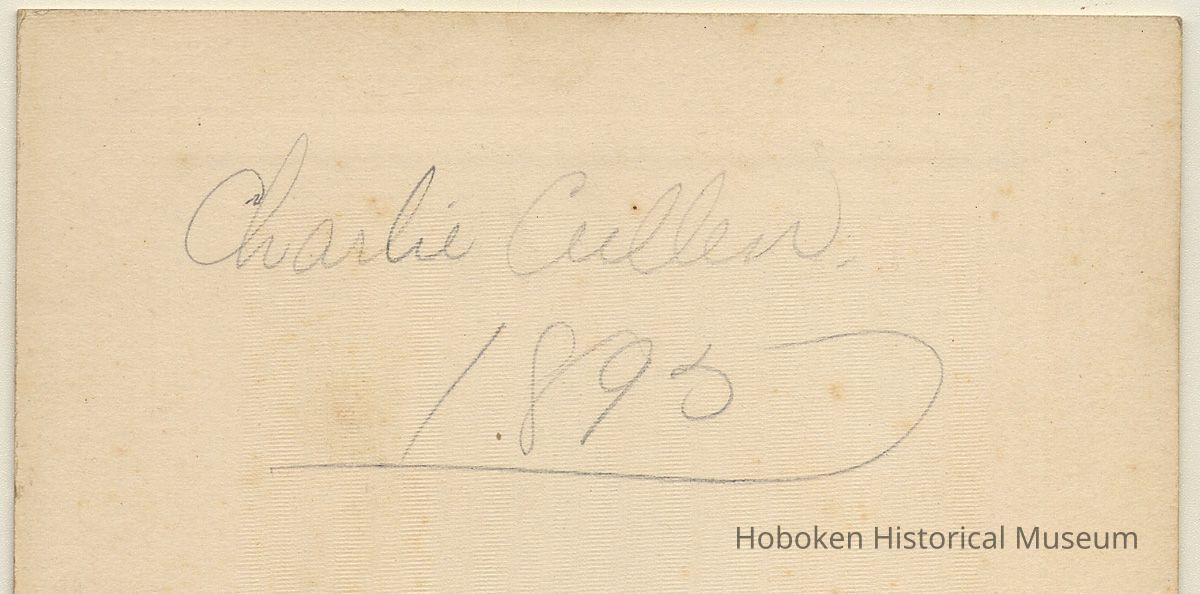 Charlie Cullen.
1895
Hoboken Historical Museum